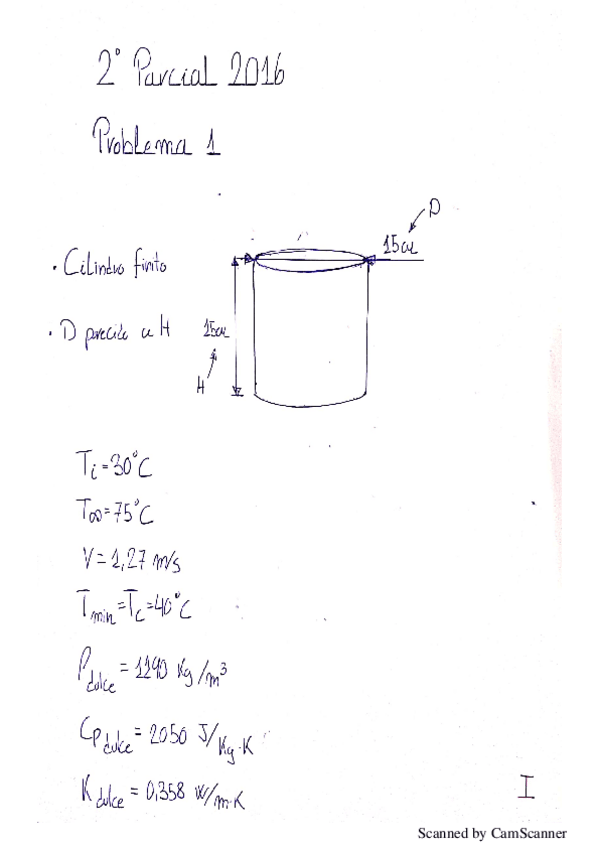 2° Parcial 2016
Problema 1
D
15cm
· Cilindro finito
· D parecido a H
15cm
H
Ti=30°C
T∞=75°C
V=1,27 m/s
Tmin=Tc=40°C
ρdulce = 1290 Kg/m³
Cp dulce = 2050 J/Kg·K
K dulce = 0,358 W/m·K
I
Scanned by CamScanner